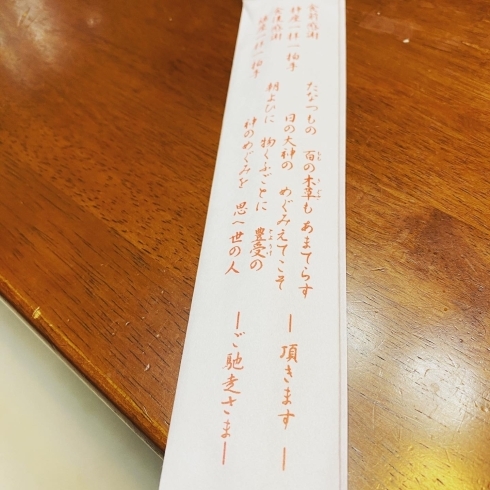 食前感謝
静座一拝一拍手
たなつもの 百の木草も あまてらす
日の大神の めぐみえてこそ
―頂きます―
食後感謝
端座一拝一拍手
朝よひに 物くふごとに 豊受の
神のめぐみを 思へ世の人
―ご馳走さま―